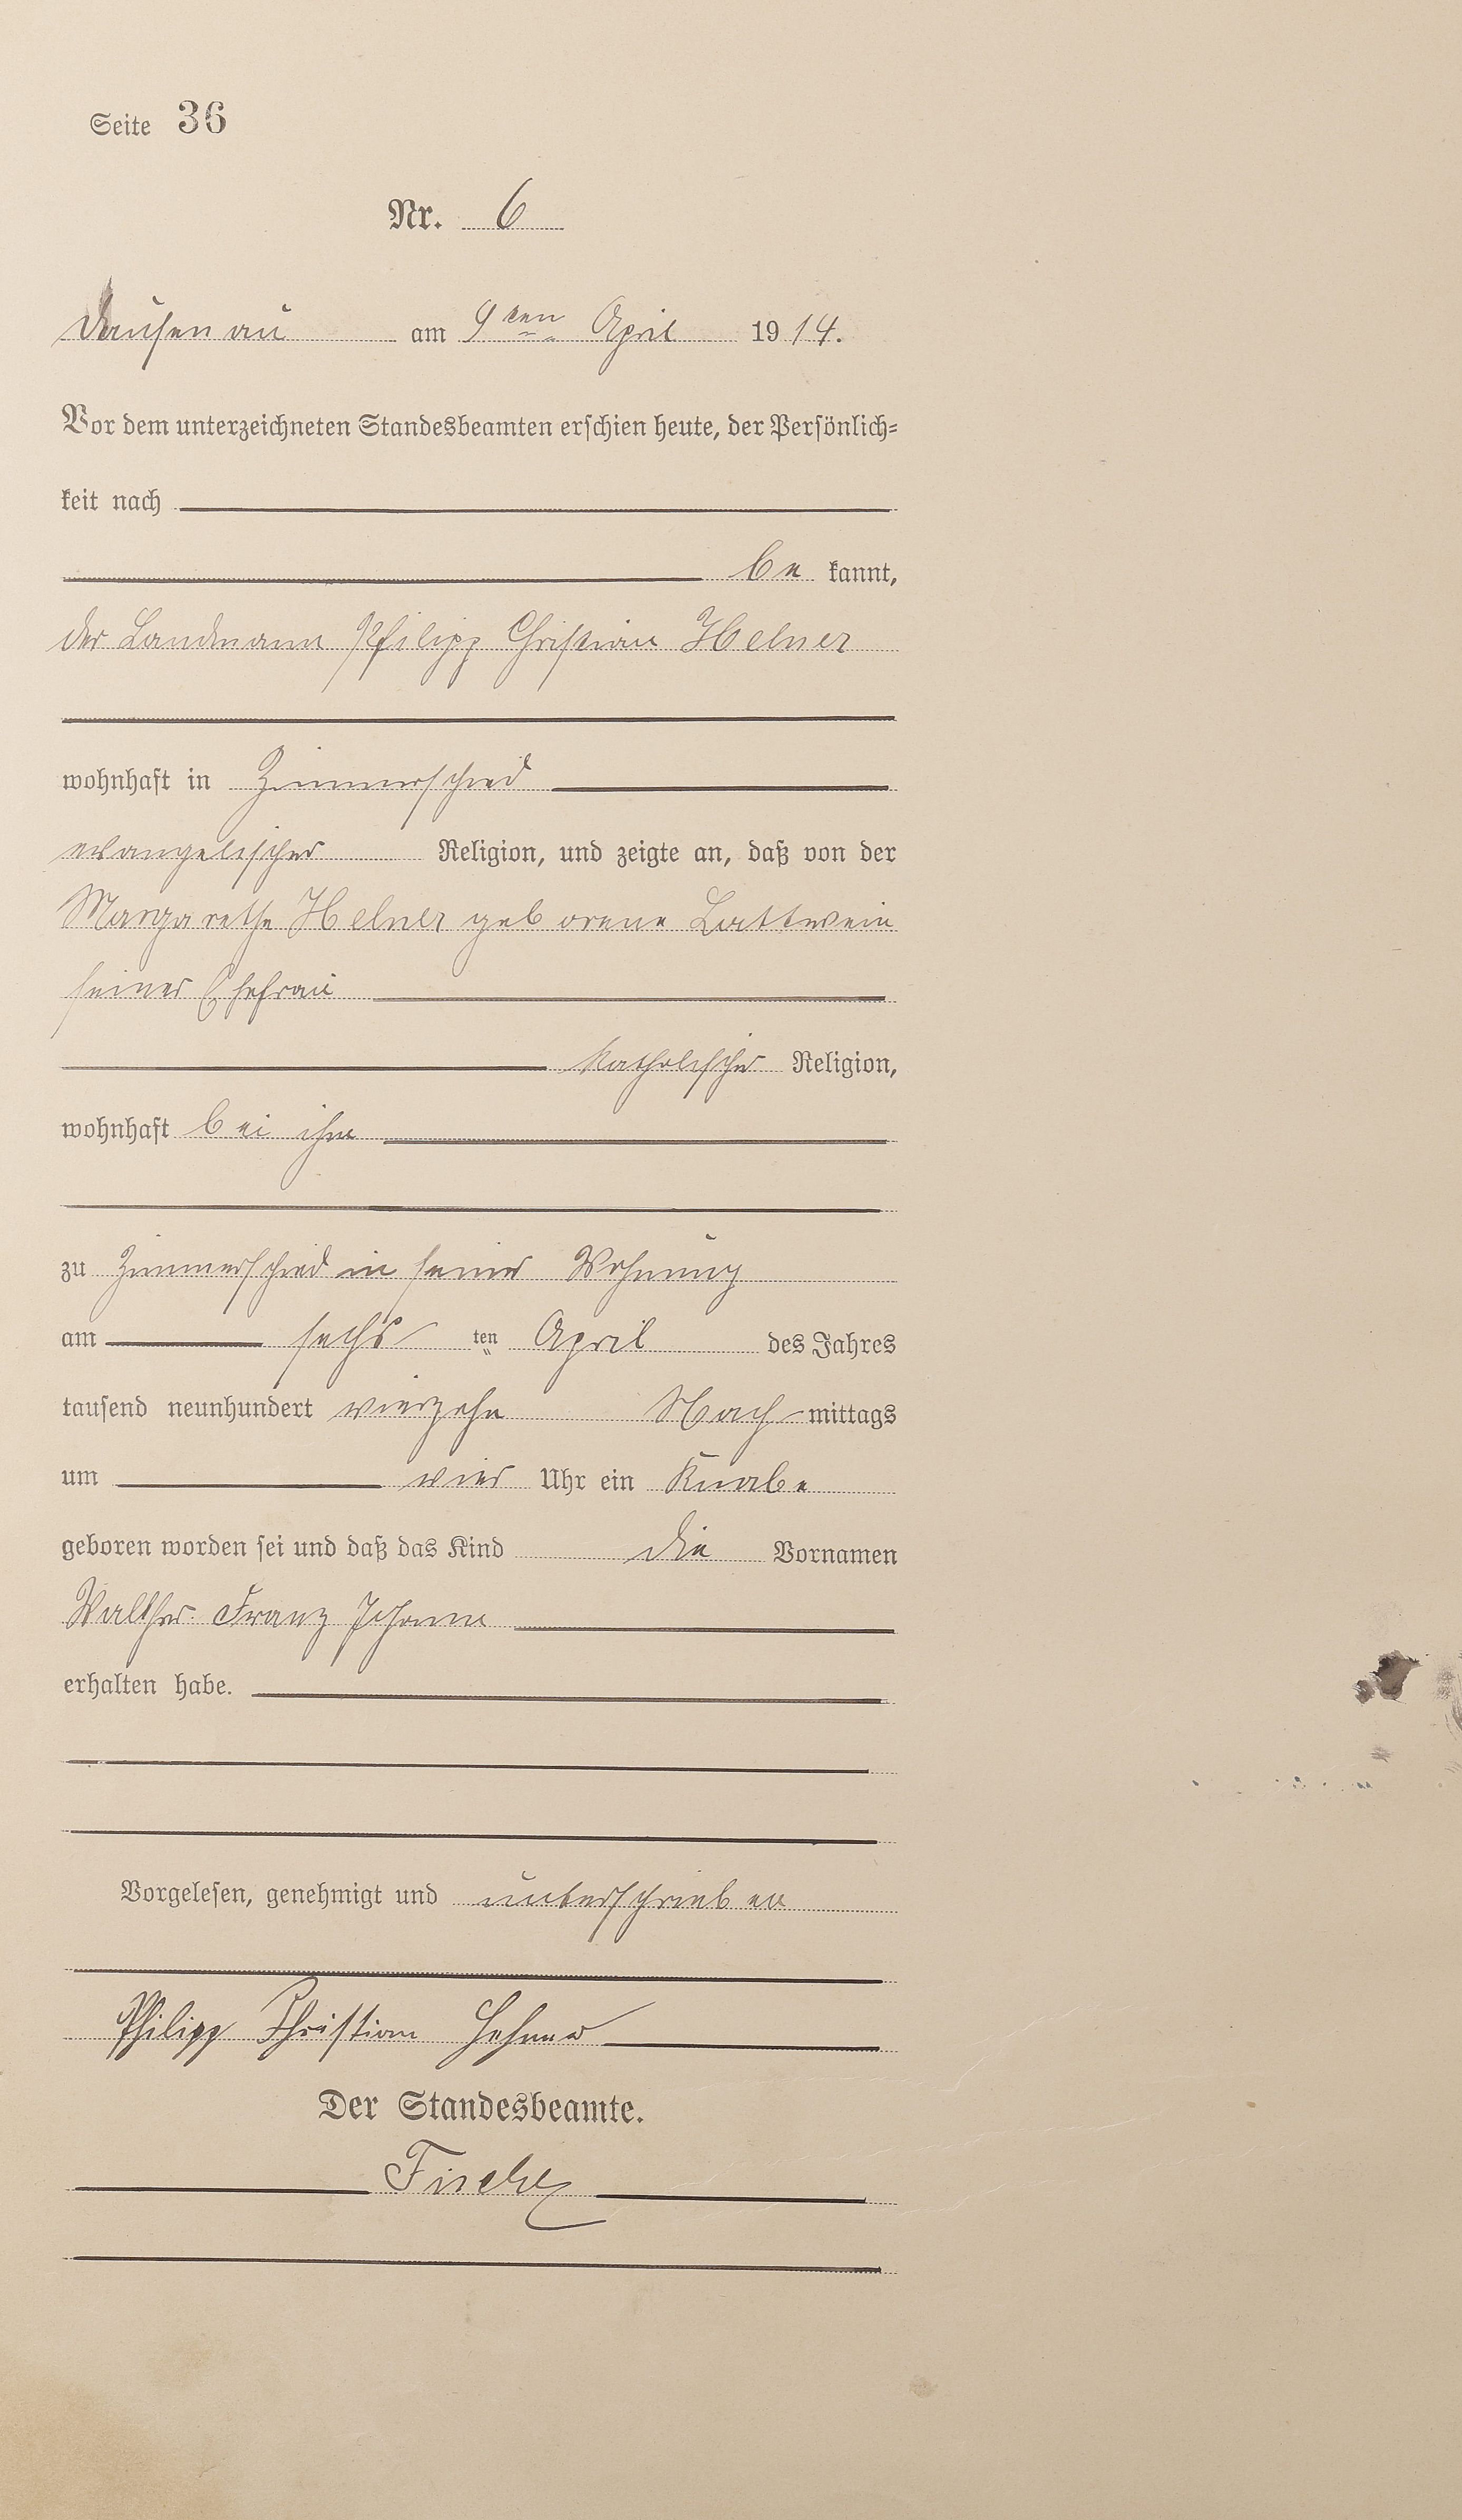 Seite 36
Nr. 6
Dausenau am 9ten April 1914.
Vor dem unterzeichneten Standesbeamten erschien heute, der Persönlich-
keit nach
be kannt,
der Landmann Philipp Christian
wohnhaft in Zimmerschied
evangelischer Religion, und zeigte an, daß von der
Margarethe geborene Lattwein
seiner Ehefrau
katholischer Religion,
wohnhaft bei ihm
zu Zimmerschied in seiner Wohnung
am sechs ten April des Jahres
tausend neunhundert vierzehn Nach mittags
um vier Uhr ein Knabe
geboren worden sei und daß das Kind die Vornamen
Walther Franz Johann
erhalten habe.
Vorgelesen, genehmigt und unterschrieben
Philipp Christian
Der Standesbeamte.